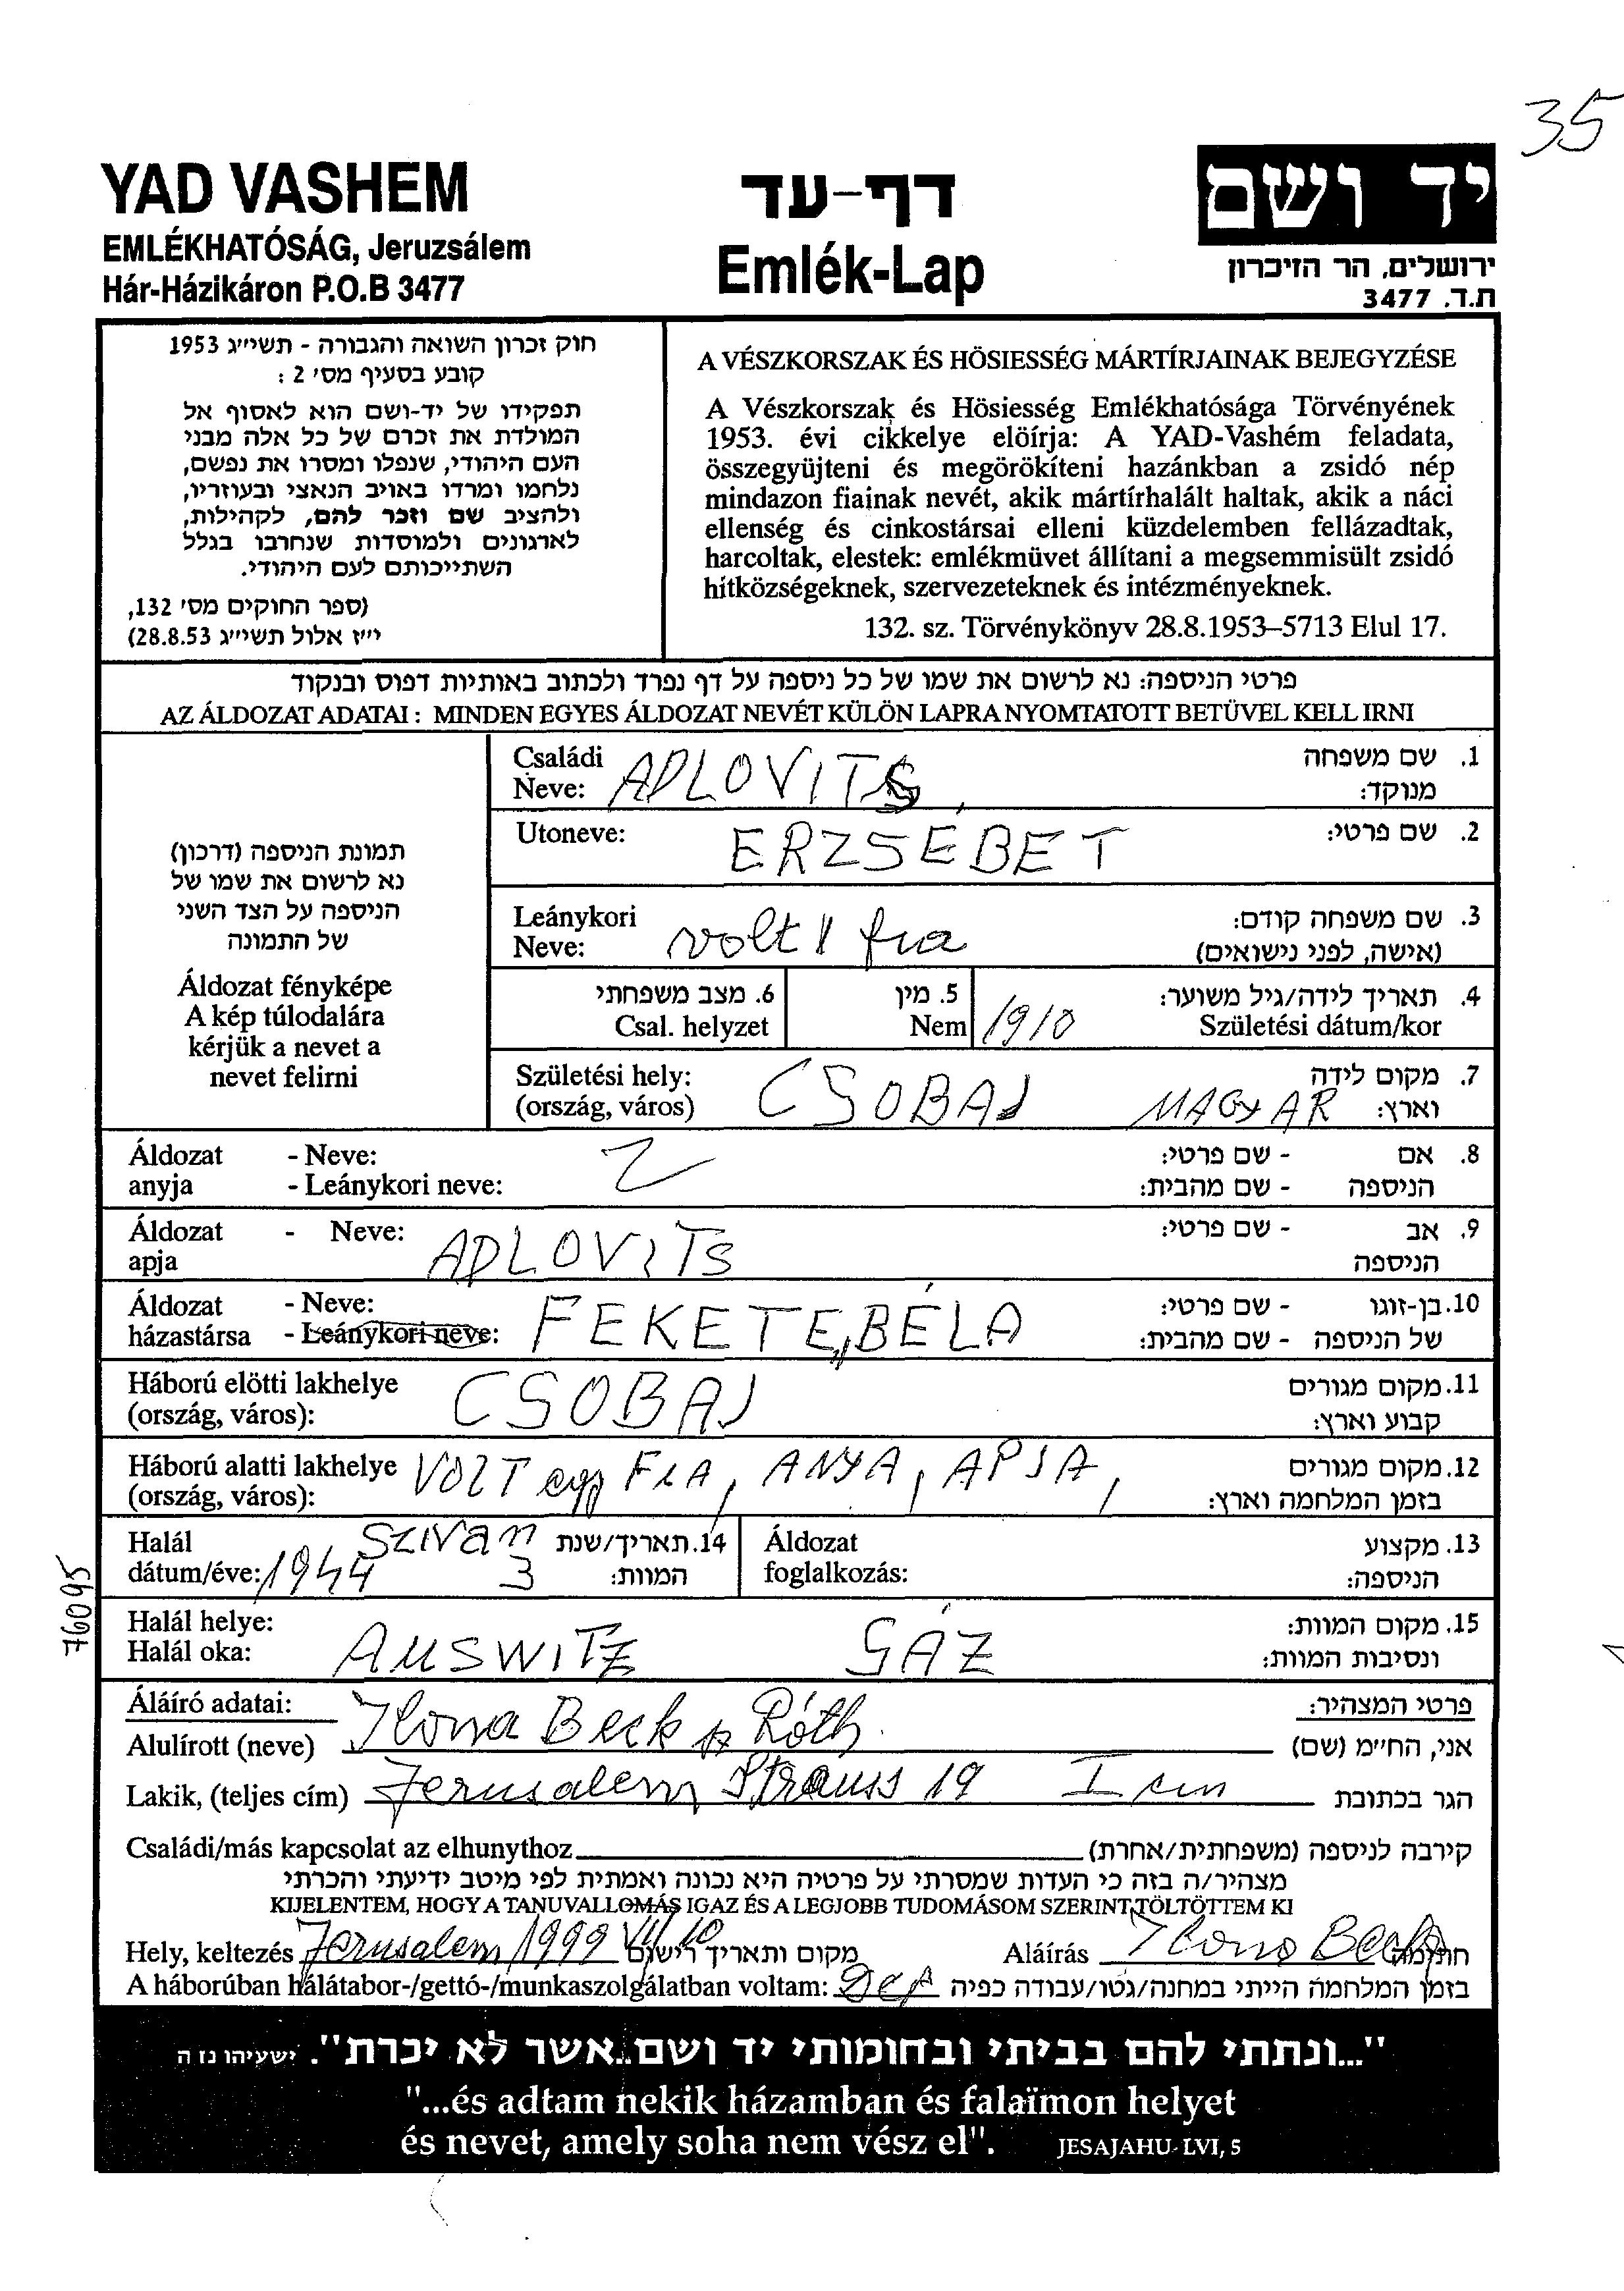 35
YAD VASHEM
EMLÉKHATÓSÁG, Jeruzsálem
Hár-Házikáron P.O.B 3477
דף-עד
Emlék-Lap
יד ושם
ירושלים, הר הזיכרון
ת.ד. 3477
חוק זכרון השואה והגבורה - תשי״ג 1953
קובע בסעיף מס׳ 2 :
תפקידו של יד-ושם הוא לאסוף אל
המולדת את זכרם של כל אלה מבני
העם היהודי, שנפלו ומסרו את נפשם,
נלחמו ומרדו באויב הנאצי ובעוזריו,
ולהציב שם וזכר להם, לקהילות,
לארגונים ולמוסדות שנחרבו בגלל
השתייכותם לעם היהודי.
(ספר החוקים מס׳ 132,
י״ז אלול תשי״ג 28.8.53)
A VÉSZKORSZAK ÉS HÖSIESSÉG MÁRTÍRJAINAK BEJEGYZÉSE
A Vészkorszak és Hösiesség Emlékhatósága Törvényének
1953. évi cikkelye elöírja: A YAD-Vashém feladata,
összegyüjteni és megörökíteni hazánkban a zsidó nép
mindazon fiainak nevét, akik mártírhalált haltak, akik a náci
ellenség és cinkostársai elleni küzdelemben fellázadtak,
harcoltak, elestek: emlékmüvet állítani a megsemmisült zsidó
hítközségeknek, szervezeteknek és intézményeknek.
132. sz. Törvénykönyv 28.8.1953–5713 Elul 17.
פרטי הניספה: נא לרשום את שמו של כל ניספה על דף נפרד ולכתוב באותיות דפוס ובנקוד
AZ ÁLDOZAT ADATAI : MINDEN EGYES ÁLDOZAT NEVÉT KÜLÖN LAPRA NYOMTATOTT BETÜVEL KELL IRNI
תמונת הניספה (דרכון)
נא לרשום את שמו של
הניספה על הצד השני
של התמונה
Áldozat fényképe
A kép túlodalára
kérjük a nevet a
nevet felirni
Családi
Neve: ADLOVITS
1. שם משפחה
מנוקד:
Utoneve: ERZSÉBET 2. שם פרטי:
Leánykori
Neve: volt 1 fia
3. שם משפחה קודם:
(אישה, לפני נישואים)
6. מצב משפחתי
Csal. helyzet
5. מין
Nem
1910
4. תאריך לידה/גיל משוער:
Születési dátum/kor
Születési hely:
(ország, város) CSOBAJ MAGYAR
7. מקום לידה
וארץ:
Áldozat - Neve:
anyja - Leánykori neve:
8. אם - שם פרטי:
הניספה - שם מהבית:
Áldozat - Neve: ADLOVITS
apja
9. אב - שם פרטי:
הניספה
Áldozat - Neve: FEKETE BÉLA
házastársa - Leánykori neve:
10. בן-זוגו - שם פרטי:
של הניספה - שם מהבית:
Háború elötti lakhelye
(ország, város): CSOBAJ
11. מקום מגורים
קבוע וארץ:
Háború alatti lakhelye VOLT egy FIA, ANYA, APJA,
(ország, város):
12. מקום מגורים
בזמן המלחמה וארץ:
Halál
dátum/éve: 1944 SZIVAN 3
14. תאריך/שנת
המוות:
Áldozat
foglalkozás:
13. מקצוע
הניספה:
76095
Halál helye:
Halál oka: AUSWITZ GÁZ
15. מקום המוות:
ונסיבות המוות:
Áláíró adatai:
פרטי המצהיר:
Alulírott (neve) Ilona Beck Róth אני, הח״מ (שם)
Lakik, (teljes cím) Jerusalem Strauss 19 הגר בכתובת
Családi/más kapcsolat az elhunythoz קירבה לניספה (משפחתית/אחרת)
מצהיר/ה בזה כי העדות שמסרתי על פרטיה היא נכונה ואמתית לפי מיטב ידיעתי והכרתי
KIJELENTEM, HOGY A TANUVALLOMÁS IGAZ ÉS A LEGJOBB TUDOMÁSOM SZERINT TÖLTÖTTEM KI
Hely, keltezés Jerusalem 1999 VII 10 מקום ותאריך רישום Aláírás Ilona Beck חתימה
A háborúban hálátabor-/gettó-/munkaszolgálatban voltam: בזמן המלחמה הייתי במחנה/גטו/עבודה כפיה
"...ונתתי להם בביתי ובחומותי יד ושם..אשר לא יכרת". ישעיהו נו ה
"...és adtam nekik házamban és falaïmon helyet
és nevet, amely soha nem vész el". JESAJAHU- LVI, 5